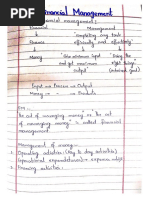 Financial Management
Financial management :
Financial Management
↓ ↓
Finance "completing any task
↓ efficiently and effectively"
Money ↓ ↓
"Use minimum input "Doing the
and get maximum right things"
output" (internal goal)
Input ⇒ Process ⇒ Output
Money → → Products
FM :-
The art of managing money or the act
of managing money is called financial
management
Management of money :-
1. Operating activities (day to day activities)
(operational expenditure) → expense
2. Financing activities :